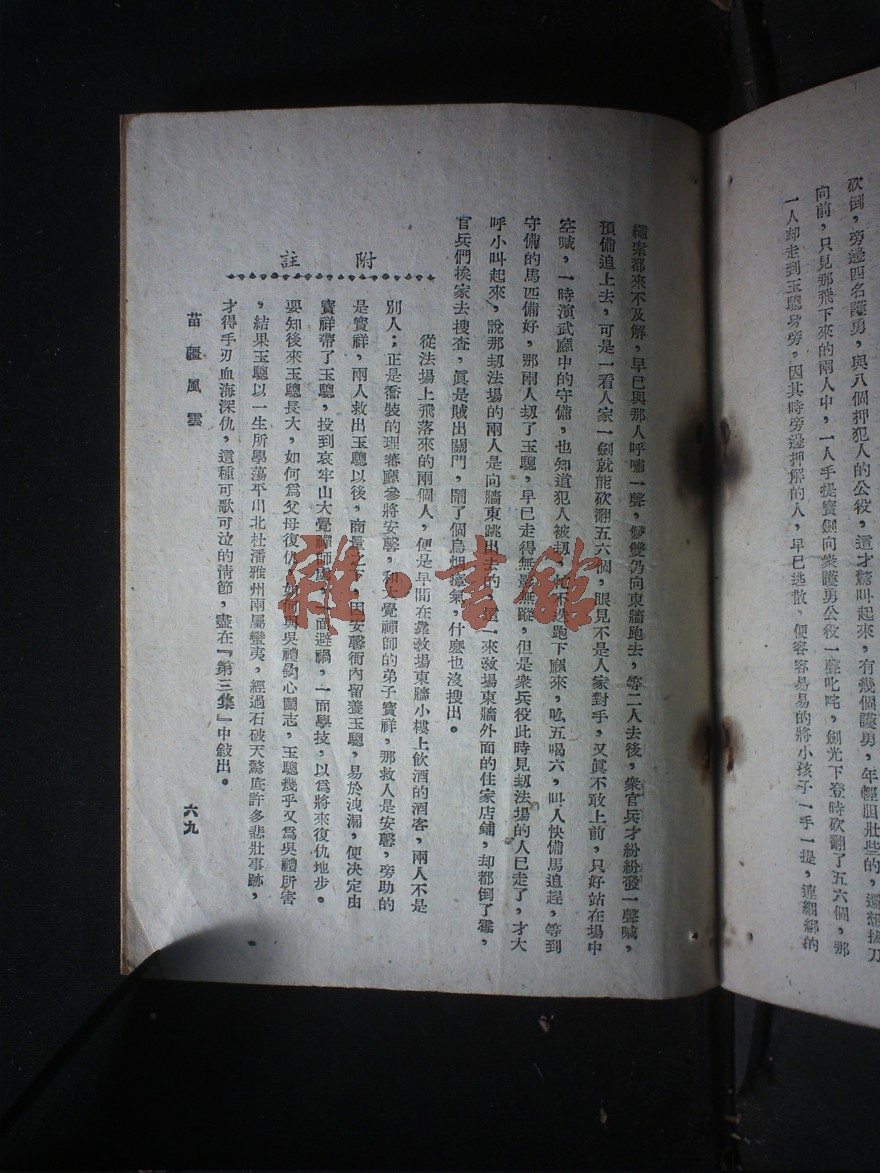 砍倒，旁邊四名護勇，與八個押犯人的公役，這才驚叫起來，有幾個護勇，年輕胆壯些的，還想拔刀
向前，只見那飛下來的兩人中，一人手提寶劍向衆護勇公役一聲叱咤，劍光下登時砍翻了五六個，那
一人却走到玉驄身旁，因其時旁邊押解的人，早已逃散，便容容易易的將小孩子一手一提，連綑綁的
繩索都來不及解，早已與那人呼嘯一聲，雙雙仍向東牆跑去，等二人去後，衆官兵才紛紛發一聲喊，
預備追上去，可是一看人家一劍就能砍翻五六個，眼見不是人家對手，又眞不敢上前，只好站在場中
空喊，一時演武廳中的守備，也知道犯人被刼，忙不迭跑下廳來，吆五喝六，叫人快備馬追趕，等到
守備的馬匹備好，那兩人刼了玉驄，早已走得無影無蹤，但是衆兵役此時見刼法場的人已走了，才大
呼小叫起來，說那刼法場的兩人是向牆東跳出去的，這一來敎場東牆外面的住家店鋪，却都倒了霉，
官兵們挨家去搜查，眞是賊出關門，鬧了個烏烟瘴氣，什麼也沒搜出。
附註
從法場上飛落來的兩個人，便是早間在靠敎場東牆小樓上飲酒的酒客，兩人不是
別人；正是喬裝的理蕃廳參將安馨，和大覺禪師的弟子寳祥，那救人是安馨，旁助的
是寳祥，兩人救出玉驄以後，商量之下，因安馨衙內留養玉驄，易於洩漏，便決定由
寳祥帶了玉驄，投到哀牢山大覺禪師處，一面避禍，一面學技，以爲將來復仇地步。
要知後來玉驄長大，如何爲父母復仇，如何與吳禮鈎心鬭志，玉驄幾乎又爲吳禮所害
，結果玉驄以一生所學蕩平川北杜潘雅州兩屬蠻夷，經過石破天驚底許多悲壯事跡，
才得手刃血海深仇，這種可歌可泣的情節，盡在『第三集』中敍出。
苗疆風雲
六九
雜·書館